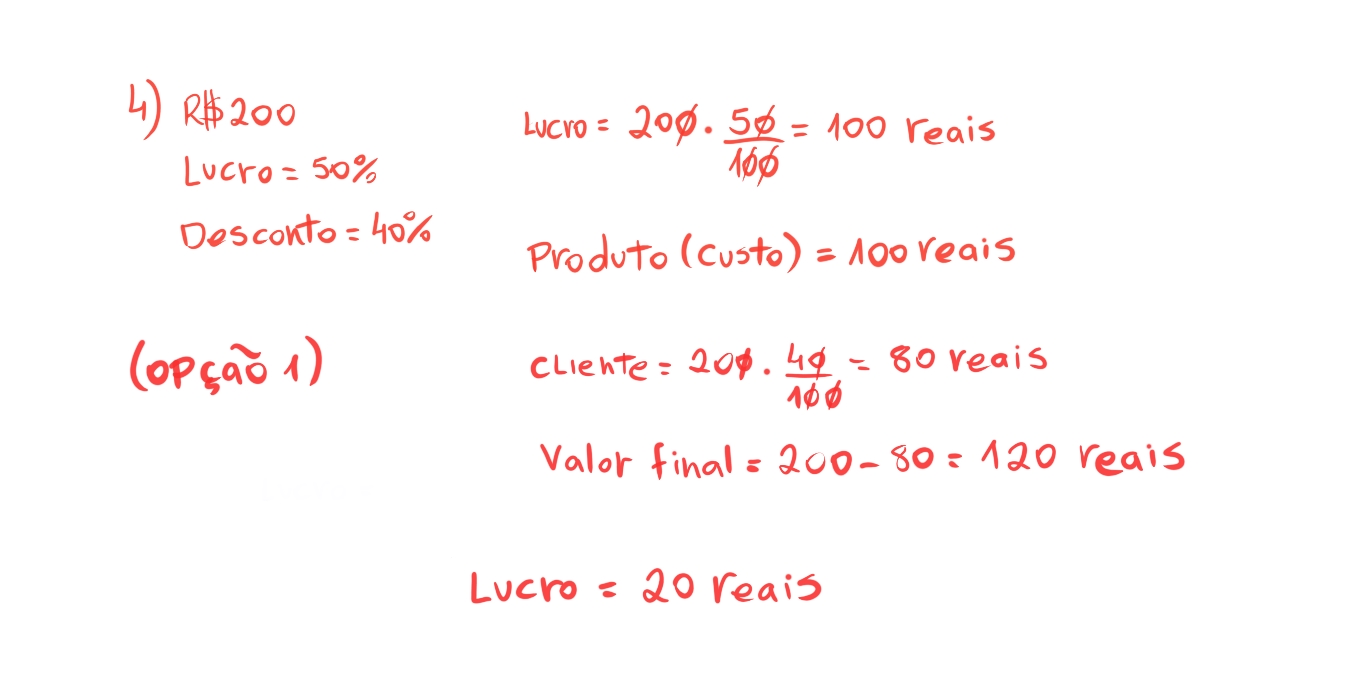 4) R$200
Lucro = 50%
Desconto = 40%
Lucro = 200 . 50/100 = 100 reais
Produto (custo) = 100 reais
(opção 1)
Cliente = 200 . 40/100 = 80 reais
Valor final = 200 - 80 = 120 reais
Lucro = 20 reais